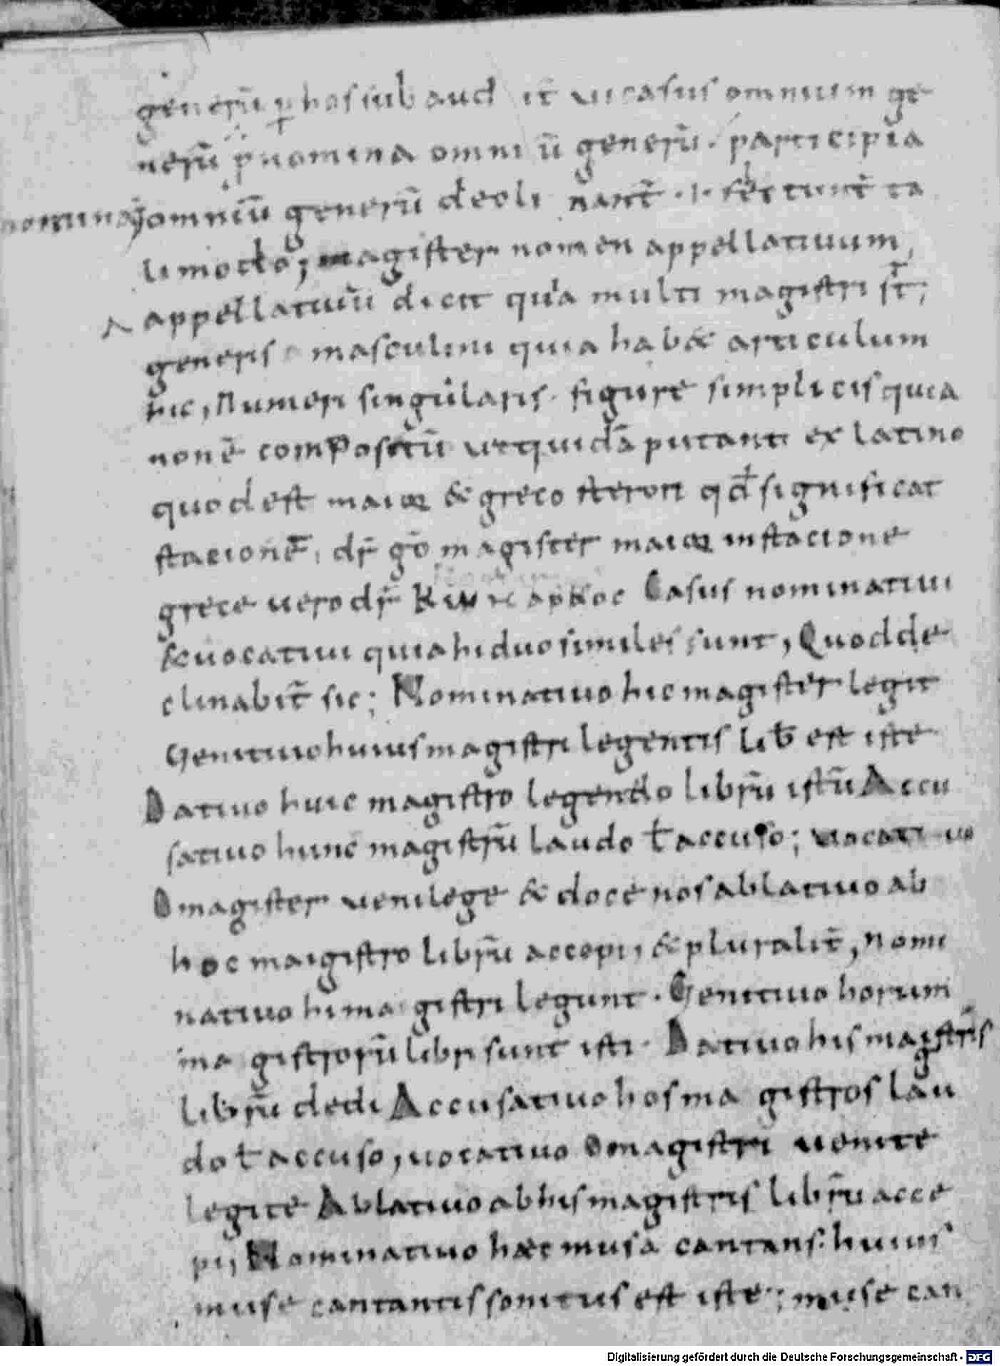 generū ꝑ hos subaud it ut casus omnium ge
nerū pnomina omni ū generū. participia
nomina omniū generū decli nant̄ .i. flectunt̄ ta
li modo; magister nomen appellativum,
appellatiuū dicit quia multi magistri st̄;
generis masculini quia habet articulum
hic, Numeri singularis. figure simplicis quia
non ē compositū ut quidā putant ex latino
quod est maior & greco steron qđ significat
stacionē, dr̄ gō magister maior in stacione
grece uero dr̄ Casus nominatiui
& uocatiui quia hi duo similes sunt, Quod de
clinabit̄ sic; Nominatiuo hic magister legit
Genitiuo huius magistri legentis lib̄ est iste
Datiuo huic magistro legendo librū istū Accu
satiuo hunc magistrū laudo ł accuso; uocatiuo
O magister ueni lege & doce nos ablatiuo ab
hoc maigistro librū accepi, & pluralit̄, Nomi
natiuo hi magistri legunt. Genitiuo horum
magistrorū libri sunt isti. Datiuo his magistris
librū dedi Accusatiuo hos magistros lau
do ł accuso, uocatiuo O magistri uenite
legite Ablatiuo ab his magistris librū acce
pi, Nominatiuo haec musa cantans. huius
muse cantantis sonitus est iste; muse can
Digitalisierung gefördert durch die Deutsche Forschungsgemeinschaft - DFG